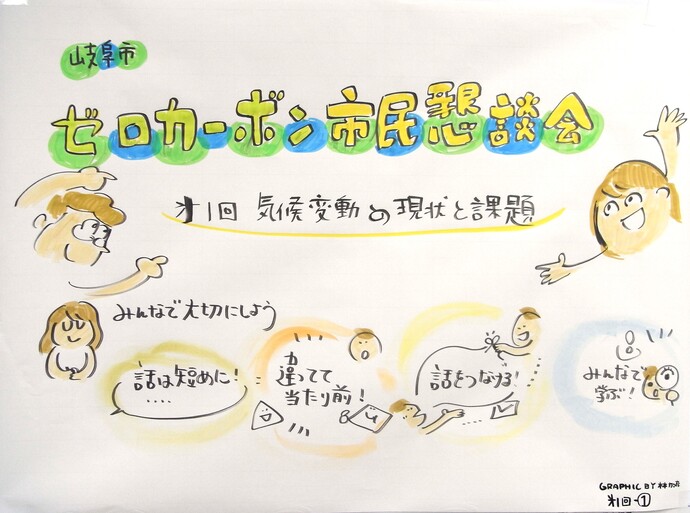 岐阜市
ゼロカーボン市民懇談会
第1回 気候変動の現状と課題
みんなで大切にしよう
話は短めに!
違ってて
当たり前!
話をつなげる!
みんなで
学ぶ!
GRAPHIC BY
第1回-①